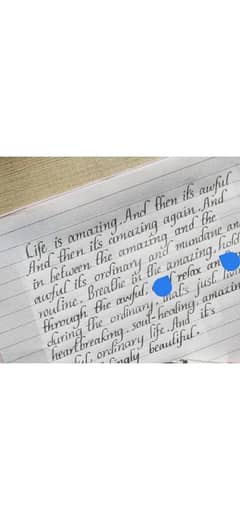 Life is amazing. And then it's awful
And then it's amazing again. And
in between the amazing and the
awful its ordinary and mundane and
routine. Breathe in the amazing, hold
through the awful, relax
during the ordinary. that's just
heartbreaking, soul-healing, amazin
ordinary life. And it's
beautiful.